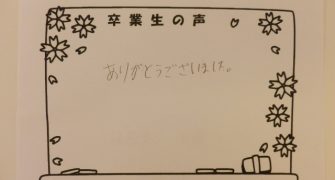 卒業生の声
ありがとうございました。